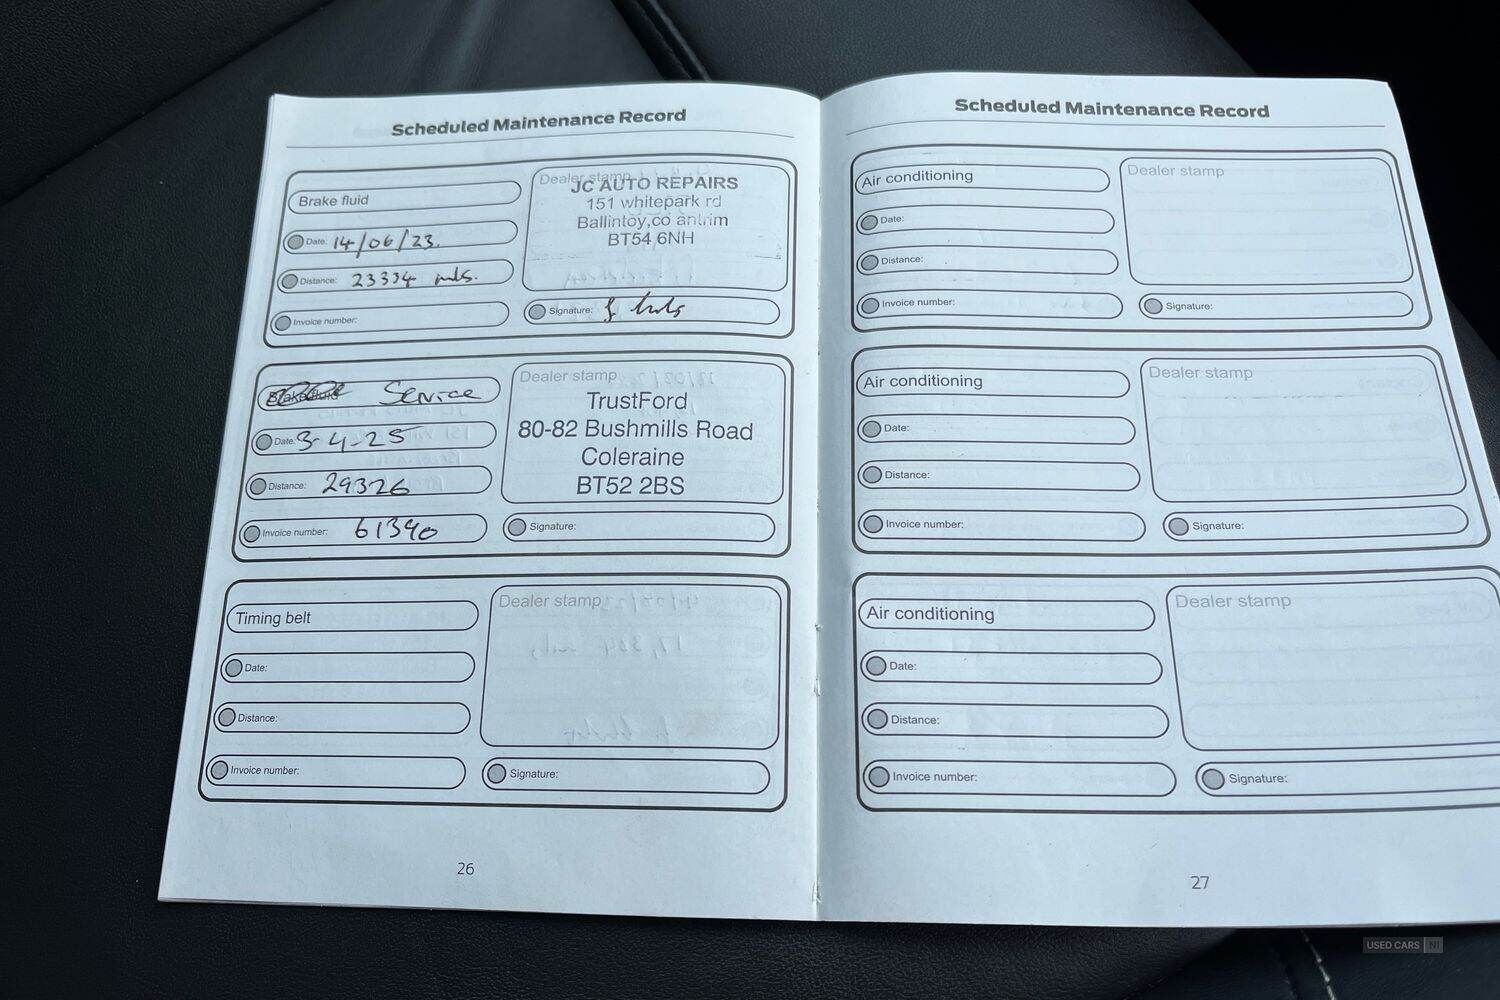 Scheduled Maintenance Record
Brake fluid
Date: 14/06/23.
Distance: 23334 mls.
Invoice number:
Dealer stamp
JC AUTO REPAIRS
151 whitepark rd
Ballintoy,co antrim
BT54 6NH
Signature:
Brake fluid Service
Date: 3-4-25
Distance: 29326
Invoice number: 61340
Dealer stamp
TrustFord
80-82 Bushmills Road
Coleraine
BT52 2BS
Signature:
Timing belt
Date:
Distance:
Invoice number:
Dealer stamp
Signature:
26
Scheduled Maintenance Record
Air conditioning
Date:
Distance:
Invoice number:
Dealer stamp
Signature:
Air conditioning
Date:
Distance:
Invoice number:
Dealer stamp
Signature:
Air conditioning
Date:
Distance:
Invoice number:
Dealer stamp
Signature:
27
USED CARS NI